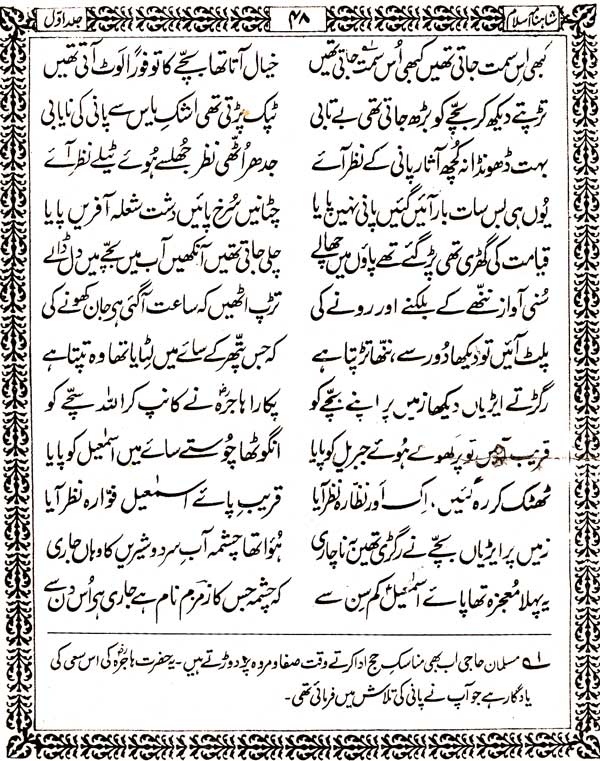 شاہنامہ اسلام ۴۸ جلد اوّل
کبھی اس سمت جاتی تھیں کبھی اُس سمت جاتی تھیں خیال آتا تھا بچّے کا تو فوراً لوٹ آتی تھیں
تڑپتے دیکھ کر بچّے کو بڑھ جاتی تھی بے تابی ٹپک پڑتی تھی اشکِ یاس سے پانی کی نایابی
بہت ڈھونڈا نہ کچھ آثار پانی کے نظر آئے جدھر اُٹھی نظر جھلسے ہوئے ٹیلے نظر آئے
یُوں ہی بس سات بار آئیں گئیں پانی نہیں پایا چٹانیں سُرخ پائیں دشت شعلہ آفریں پایا
قیامت کی گھڑی تھی پڑ گئے تھے پاؤں میں چھالے چلی جاتی تھیں آنکھیں آب میں بچّے میں دل ڈالے
سُنی آواز ننھّے کے بلکنے اور رونے کی تڑپ اٹھیں کہ ساعت آ گئی ہر جان کھونے کی
پلٹ آئیں تو دیکھا دُور سے، ننھّا تڑپتا ہے کہ جس پتّھر کے سائے میں لٹایا تھا وہ تپتا ہے
رگڑتے ایڑیاں دیکھا زمیں پر اپنے بچّے کو پکارا ہاجرہؓ نے کانپ کر اللہ سچّے کو
قریب آئیں تو پر کھولے ہوئے جبریل کو پایا انگوٹھا چُوستے سائے میں اسمٰعیل کو پایا
ٹھٹک کر رہ گئیں، اِک اَور نظّارہ نظر آیا قریبِ پائے اسمٰعیل فوّارہ نظر آیا
زمیں پر ایڑیاں بچّے نے رگڑی تھیں بہ ناچاری ہُؤا تھا چشمہ آبِ سرد و شیریں کا وہاں جاری
یہ پہلا معجزہ تھا پائے اسمٰعیلؑ کم سِن سے کہ چشمہ جس کا زمزم نام ہے جاری ہے اُس دن سے
۱ مسلمان حاجی اب بھی مناسکِ حج ادا کرتے وقت صفا و مروہ پر دوڑتے ہیں۔ یہ حضرت ہاجرہؓ کی اس سعی کی
یادگار ہے جو آپ نے پانی کی تلاش میں فرمائی تھی۔